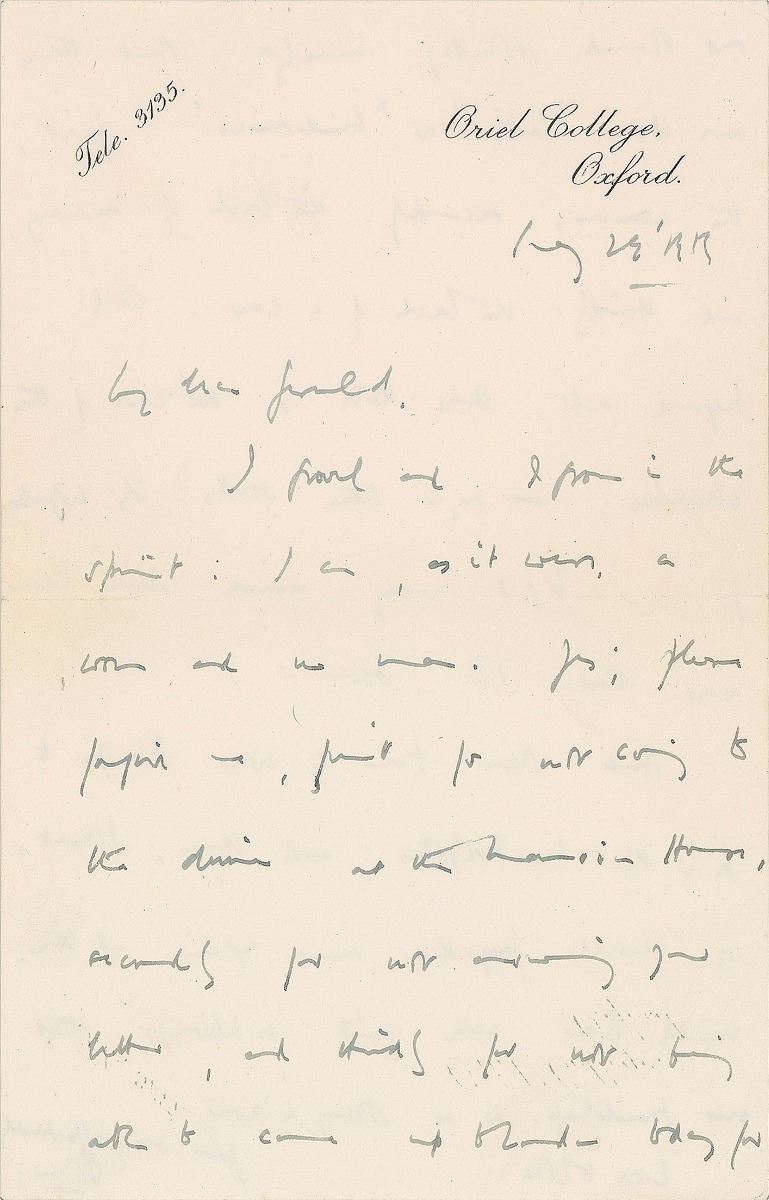 Tele. 3135.
Oriel College,
Oxford.
My dear Gerald,
I grovel and I groan in the
spirit: I am, as it were, a
worm and no man. Yes; please
forgive me, first for not coming to
the dinner at the Mansion House,
secondly for not answering your
letter, and thirdly for not being
able to come up to London today for